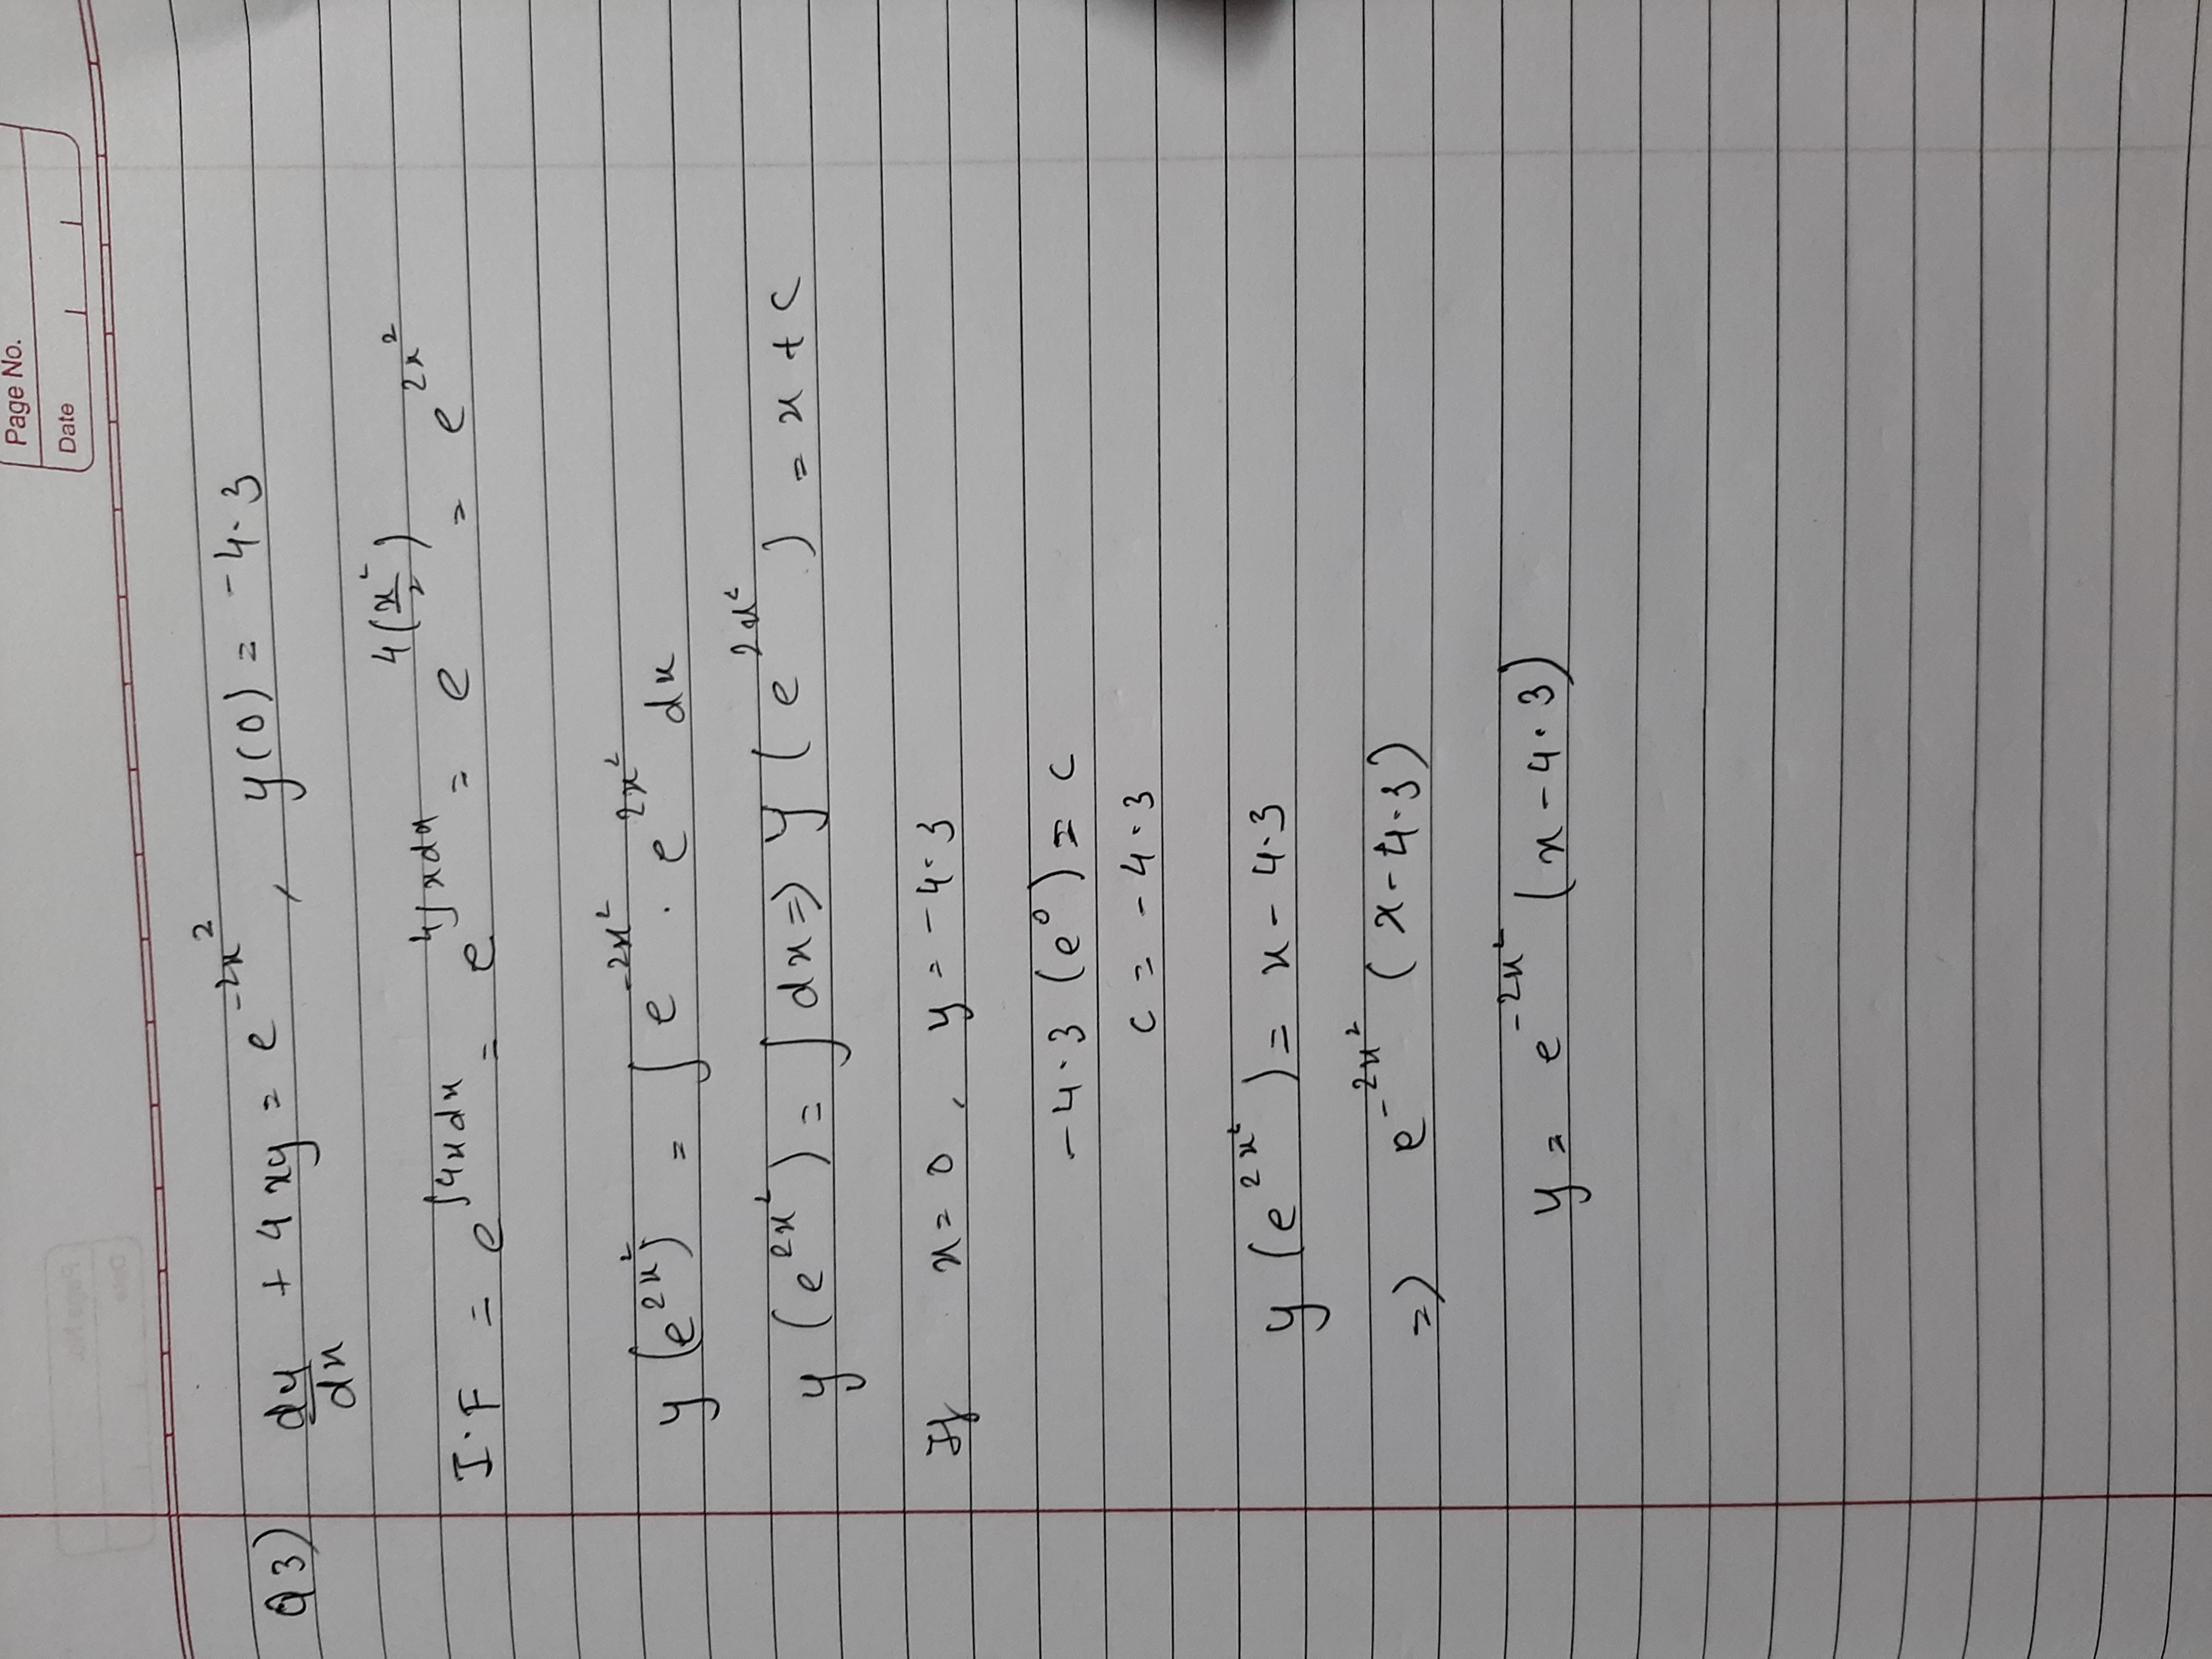 Page No.
Date
Q3) dy/dx + 4xy = e^{-2x^2}, y(0) = -4.3
I.F = e^{∫4xdx} = e^{4∫xdx} = e^{4(x^2/2)} = e^{2x^2}
y(e^{2x^2}) = ∫e^{-2x^2} . e^{2x^2} dx
y(e^{2x^2}) = ∫dx => y(e^{2x^2}) = x + c
If x = 0, y = -4.3
-4.3 (e^0) = c
c = -4.3
y(e^{2x^2}) = x - 4.3
=> e^{-2x^2} (x - 4.3)
y = e^{-2x^2} (x - 4.3)